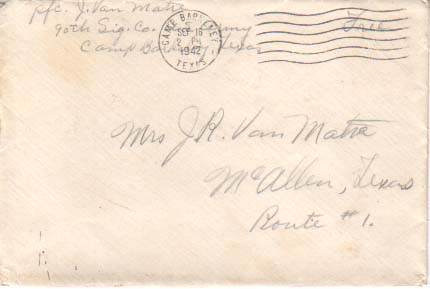 Pfc. J. Van Matre
90th Sig. Co. Army
Camp Barkeley, Texas
CAMP BARKELEY
SEP 16
2 PM
1942
TEXAS
Free
Mrs J. R. Van Matre
McAllen, Texas
Route #1.